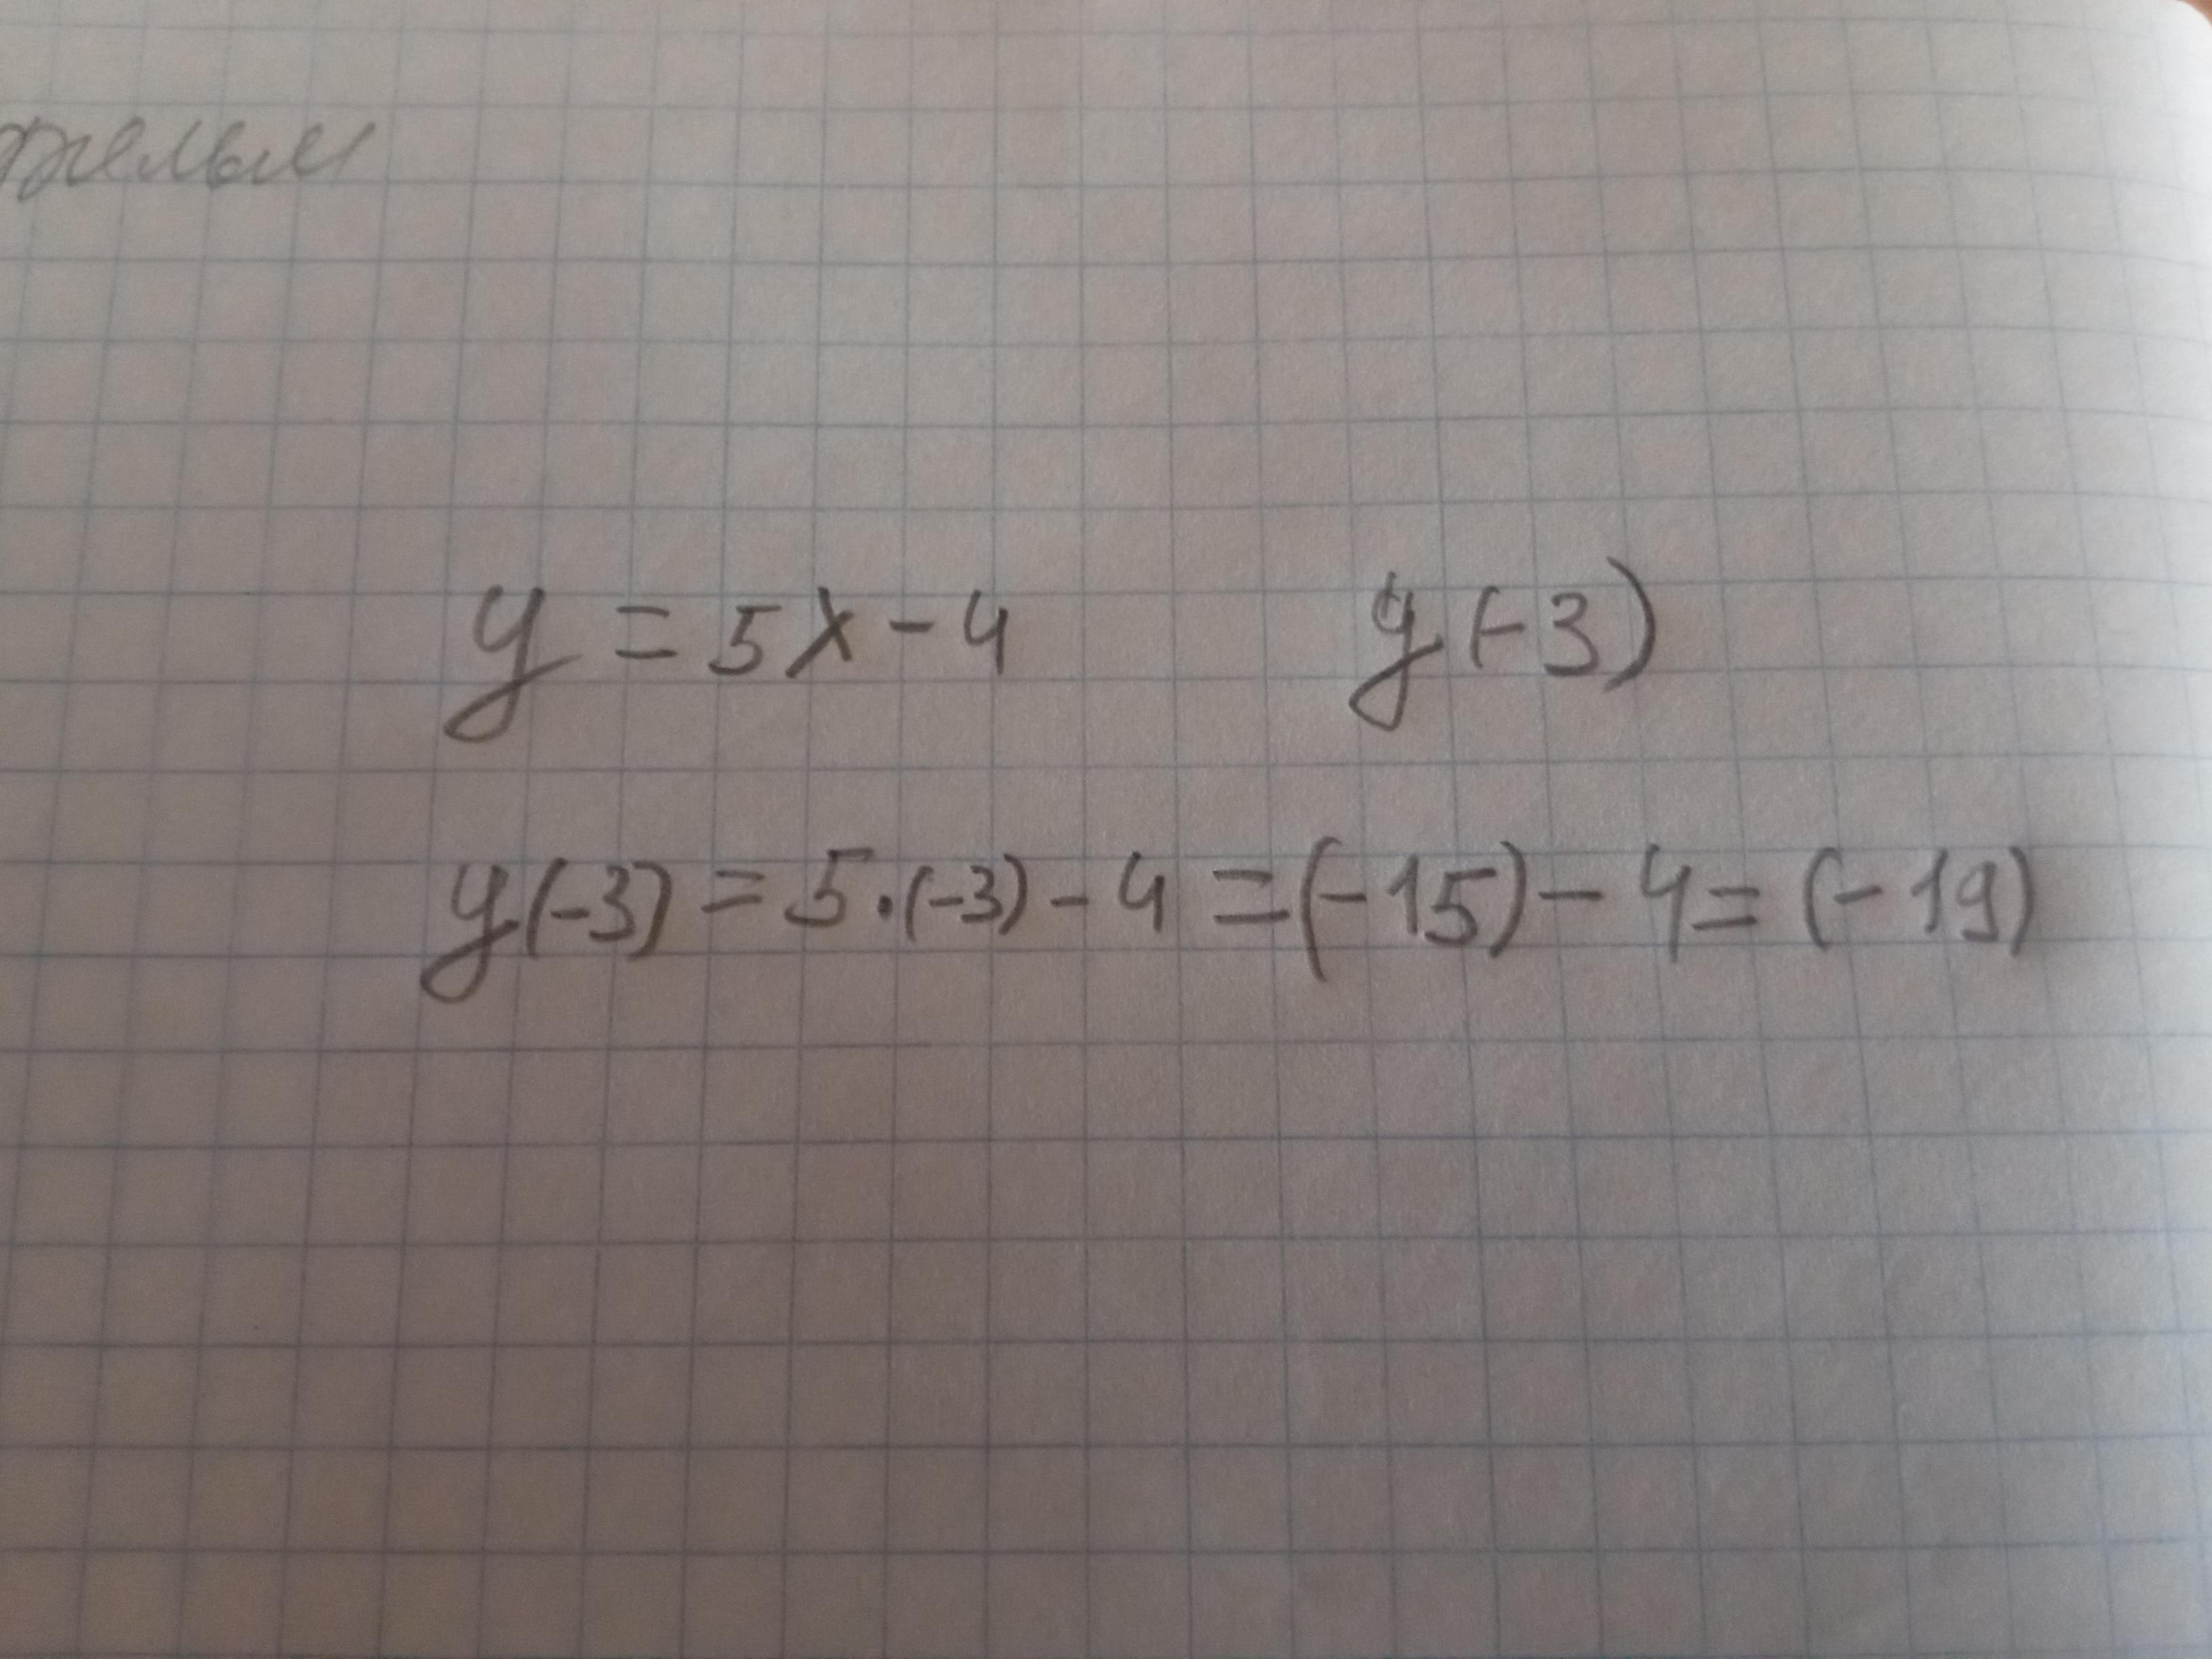 y = 5x - 4 y(-3)
y(-3) = 5·(-3) - 4 = (-15) - 4 = (-19)